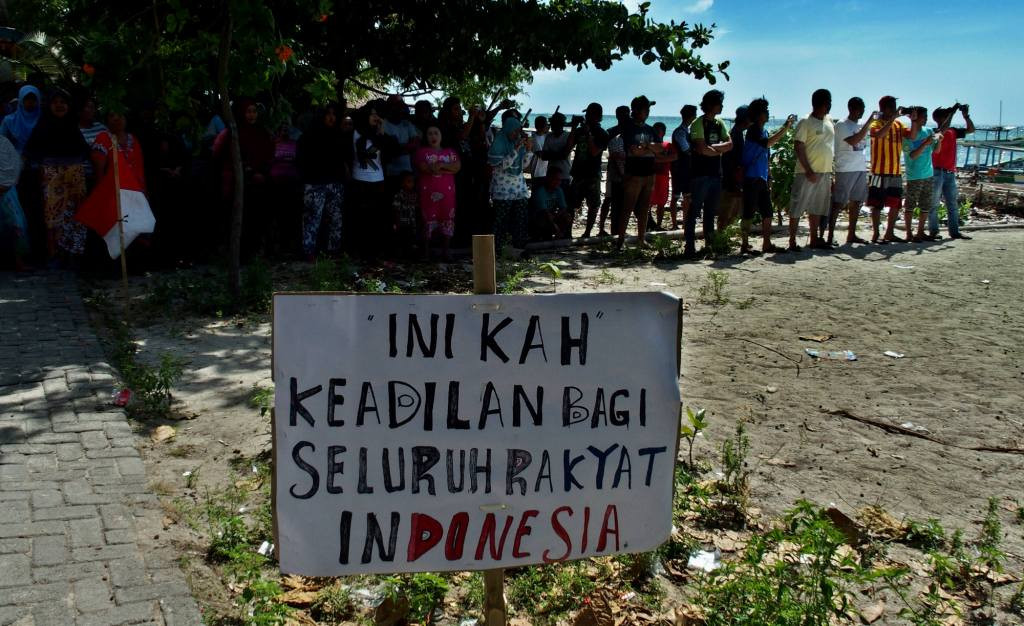 "INI KAH"
KEADILAN BAGI
SELURUH RAKYAT
INDONESIA.